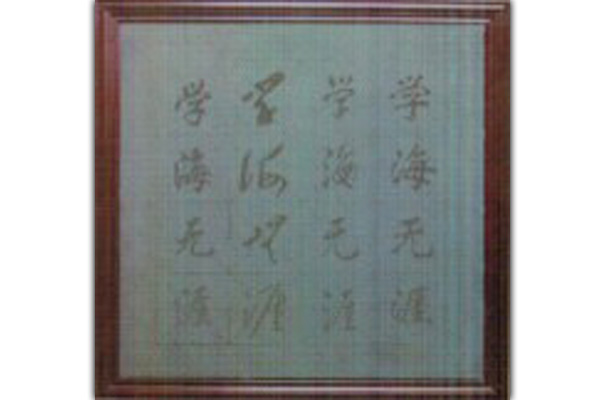 学海无涯
学海无涯
学海无涯
学海无涯